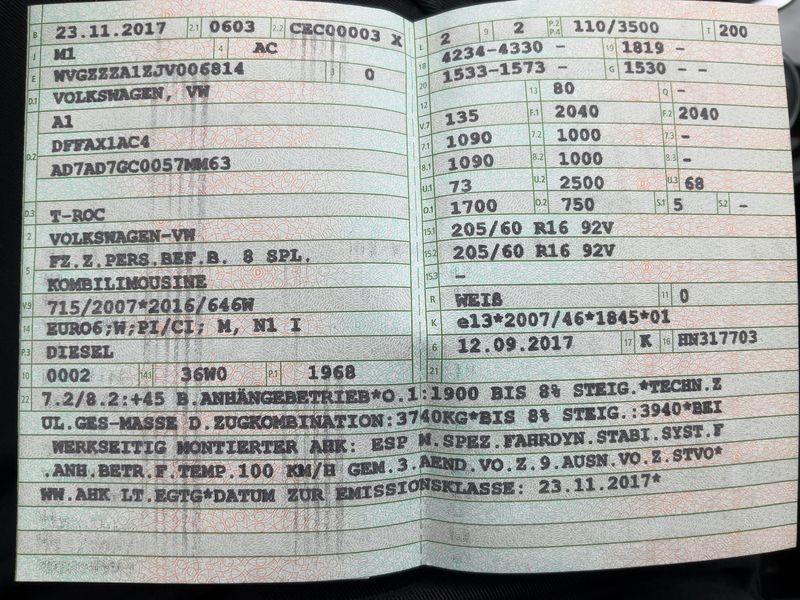 B 23.11.2017 2.1 0603 2.2 CEC00003 X
J M1 4 AC
E WVGZZZA1ZJV006814 3 0
D.1 VOLKSWAGEN, VW
A1
D.2 DFFAX1AC4
AD7AD7GC0057MM63
D.3 T-ROC
2 VOLKSWAGEN-VW
5 FZ.Z.PERS.BEF.B. 8 SPL.
KOMBILIMOUSINE
V.9 715/2007*2016/646W
14 EURO6;W;PI/CI; M, N1 I
P.3 DIESEL
10 0002 14.1 36W0 P.1 1968
L 2 9 2 P.2 P.4 110/3500 T 200
18 4234-4330 - 19 1819 -
20 1533-1573 - G 1530 - -
12 13 80 Q -
V.7 135 F.1 2040 F.2 2040
7.1 1090 7.2 1000 7.3 -
8.1 1090 8.2 1000 8.3 -
U.1 73 U.2 2500 U.3 68
O.1 1700 O.2 750 S.1 5 S.2 -
15.1 205/60 R16 92V
15.2 205/60 R16 92V
15.3 -
R WEIß 11 0
K e13*2007/46*1845*01
6 12.09.2017 17 K 16 HN317703
21
22 7.2/8.2:+45 B.ANHÄNGEBETRIEB*O.1:1900 BIS 8% STEIG.*TECHN.Z
UL.GES-MASSE D.ZUGKOMBINATION:3740KG*BIS 8% STEIG.:3940*BEI
WERKSEITIG MONTIERTER AHK: ESP M.SPEZ.FAHRDYN.STABI.SYST.F
.ANH.BETR.F.TEMP.100 KM/H GEM.3.AEND.VO.Z.9.AUSN.VO.Z.STVO*
WW.AHK LT.EGTG*DATUM ZUR EMISSIONSKLASSE: 23.11.2017*